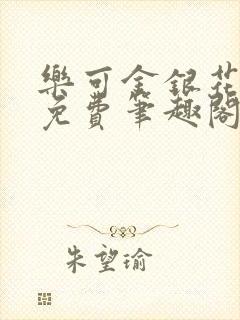 樂可金銀花
免費筆趣閣
朱望瑜